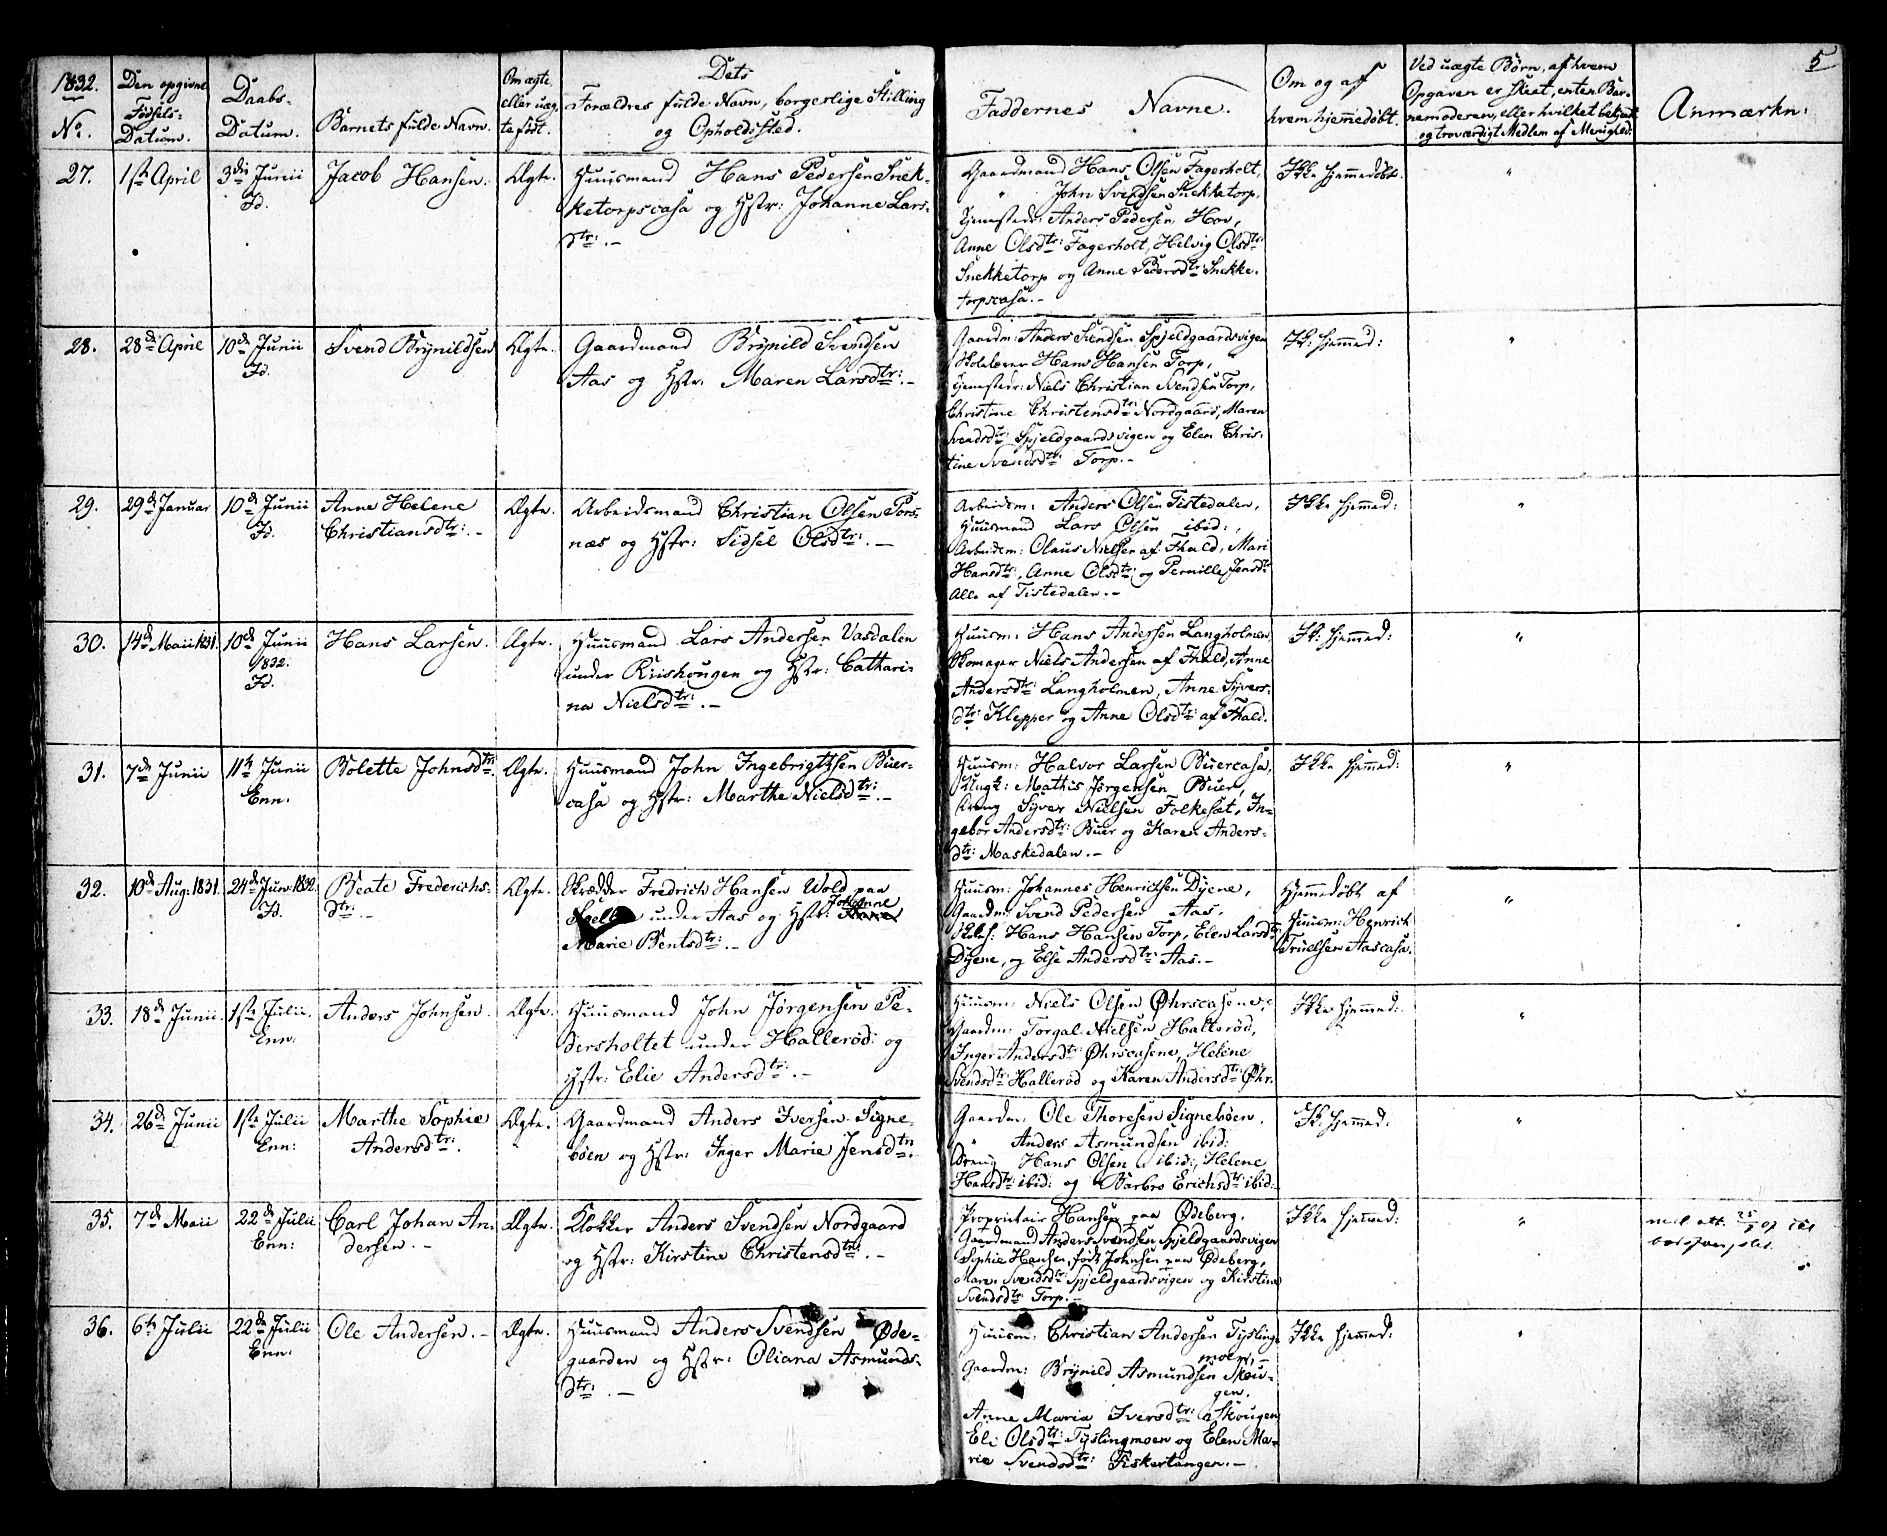 1832. No.
Den opgivne Fødsels-Datum.
Daabs-Datum.
Barnets fulde Navn.
Om ægte eller uægte født.
Dets Forældres fulde Navn, borgerlige Stilling og Opholdssted.
Faddernes Navne.
Om og af hvem hjemmedøbt.
Ved uægte Børn, af hvem Opgaven er skeet, enten Barnemoderen, eller hvilket bekjendt og troværdigt Medlem af Menighed:
Anmærkn:
5
27.
1ste April
3die Junii
Fd.
Jacob Hansen.
Ægte.
Huusmand Hans Pedersen Snek-
ketorpscasa og Hstr: Johanne Lars-
dtr: -
Gaardmand Hans Olsen Fagerholt,
" John Svendsen Snekketorp,
Tjenestedr: Anders Pedersen Hov,
Anne Olsdtr: Fagerholt, Helvig Olsdtr:
Snekketorp og Anne Pedersdtr: Snekke-
torpscasa. -
Ikke hjemmedøbt.
"
28.
28de April
10de Junii
Fd.
Svend Brynildsen
Ægte.
Gaardmand Brynild Svendsen
Aas og Hstr: Maren Larsdtr: -
Gaardm: Anders Svendsen Spjeldgaardsvigen
Skolelærer Hans Hansen Torp,
Tjenestedr: Niels Christian Svendsen Torp,
Christine Christensdtr: Nordgaard, Maren
Svendsdtr: Spjeldgaardsvigen og Elen Chris-
tine Svendsdtr: Torp. -
Ik: hjemmed:
"
29.
29de Januar
10de Junii
Fd.
Anne Helene
Christiansdtr: -
Ægte.
Arbeidsmand Christian Olsen Pors-
næs og Hstr: Sidsel Olsdtr: -
Arbeidsm: Anders Olsen Tistedalen,
Huusmand Lars Olsen ibid:,
Arbeidsm: Olaus Nielsen af Fhald, Mari
Hansdtr:, Anne Olsdtr: og Pernille Jensdtr:
Alle af Tistedalen. -
Ikke hjemmed:
"
30.
14de Maii 1831.
10de Junii
1832.
Fd.
Hans Larsen.
Ægte.
Huusmand Lars Andersen Vasdalen
under Riishougen og Hstr: Cathari-
na Nielsdtr: -
Huusm: Hans Andersen Langholmen,
Skomager Niels Andersen af Fhald, Anne
Andersdtr: Langholmen, Anne Syvers-
dtr: Klepper og Anne Olsdtr: af Fhald.
Ik: hjemmed:
"
31.
7de Junii
11te Junii
Enn:
Bolette Johnsdtr:
Ægte.
Huusmand John Ingebrigttsen Buer-
casa og Hstr: Marthe Nielsdtr: -
Huusm: Halvor Larsen Buercasa,
Ungk: Mathis Jørgensen Buer,
Dreng Syver Nielsen Folkesat, In-
gebor Andersdtr: Buer og Karen Anders-
dtr: Maskedalen. -
Ikke hjemmed:
"
32.
10de Aug: 1831.
24de Jun: 1832.
Fd.
Beate Frederichs-
dtr: -
Ægte.
Skrædder Fredrich Hansen Wold paa
under Aas og Hstr: Johanne
Marie Bentsdtr: -
Huusm: Johannes Henrictsen Dyene,
Gaardm: Svend Pedersen Aas,
Skoleh: Hans Hansen Torp, Elen Larsdtr:
Dyene, og Else Andersdtr: Aas. -
Hjemmedøbt af
Huusm: Henrich
Truelsen Aascasa.
"
33.
18de Junii.
1ste Julii.
Enn:
Anders Johnsen.
Ægte.
Huusmand John Jørgensen Pe-
dersholtet under Hallerød: og
Hstr: Elie Andersdtr: -
Huusm: Niels Olsen Øhrscasene,
Gaardm: Torgal Nielsen Hallerød,
Inger Andersdtr: Øhrscasene, Helene
Svendsdtr: Hallerød og Karen Andersdtr: Øhr.
Ikke hjemmed:
"
34.
26de Junii
1ste Julii
Enn:
Marthe Sophie
Andersdtr:
Ægte.
Gaardmand Anders Iversen Signe-
bøen og Hstr: Inger Marie Jensdtr:
Gaardm: Ole Thoresen Signebøen,
" Anders Asmundsen ibid:
Dreng Hans Olsen ibid:, Helene
Hansdtr: ibid: og Barbro Erichsdtr: ibid:
Ik: hjemmed:
"
35.
7de Maii
22de Julii
Enn:
Carl Johan An-
dersen. -
Ægte.
Klokker Anders Svendsen Nordgaard
og Hstr: Kirstine Christensdtr: -
Proprietair Hansen paa Ødeberg,
Gaardmand Anders Svendsen Spjeldgaardsvigen
Sophie Hansen, født Johnsen paa Ødeberg,
Maren Svendsdtr: Spjeldgaardsvigen og Kirstine
Svendsdtr: Torp. -
Ikke hjemmed:
"
36.
6te Julii
22de Julii
Enn:
Ole Andersen. -
Ægte.
Huusmand Anders Svendsen Øde-
gaarden og Hstr: Oliana Asmunds-
dtr: -
Huusm: Christian Andersen Tysling-
moen, -
Gaardm: Brynild Asmundsen Skou-
gen.
Anne Maria Iversdtr: Skougen
Eli Olsdtr: Tyslingmoen og Elen Ma-
rie Svendsdtr: Fiskertangen. -
Ikke hjemmed:
"